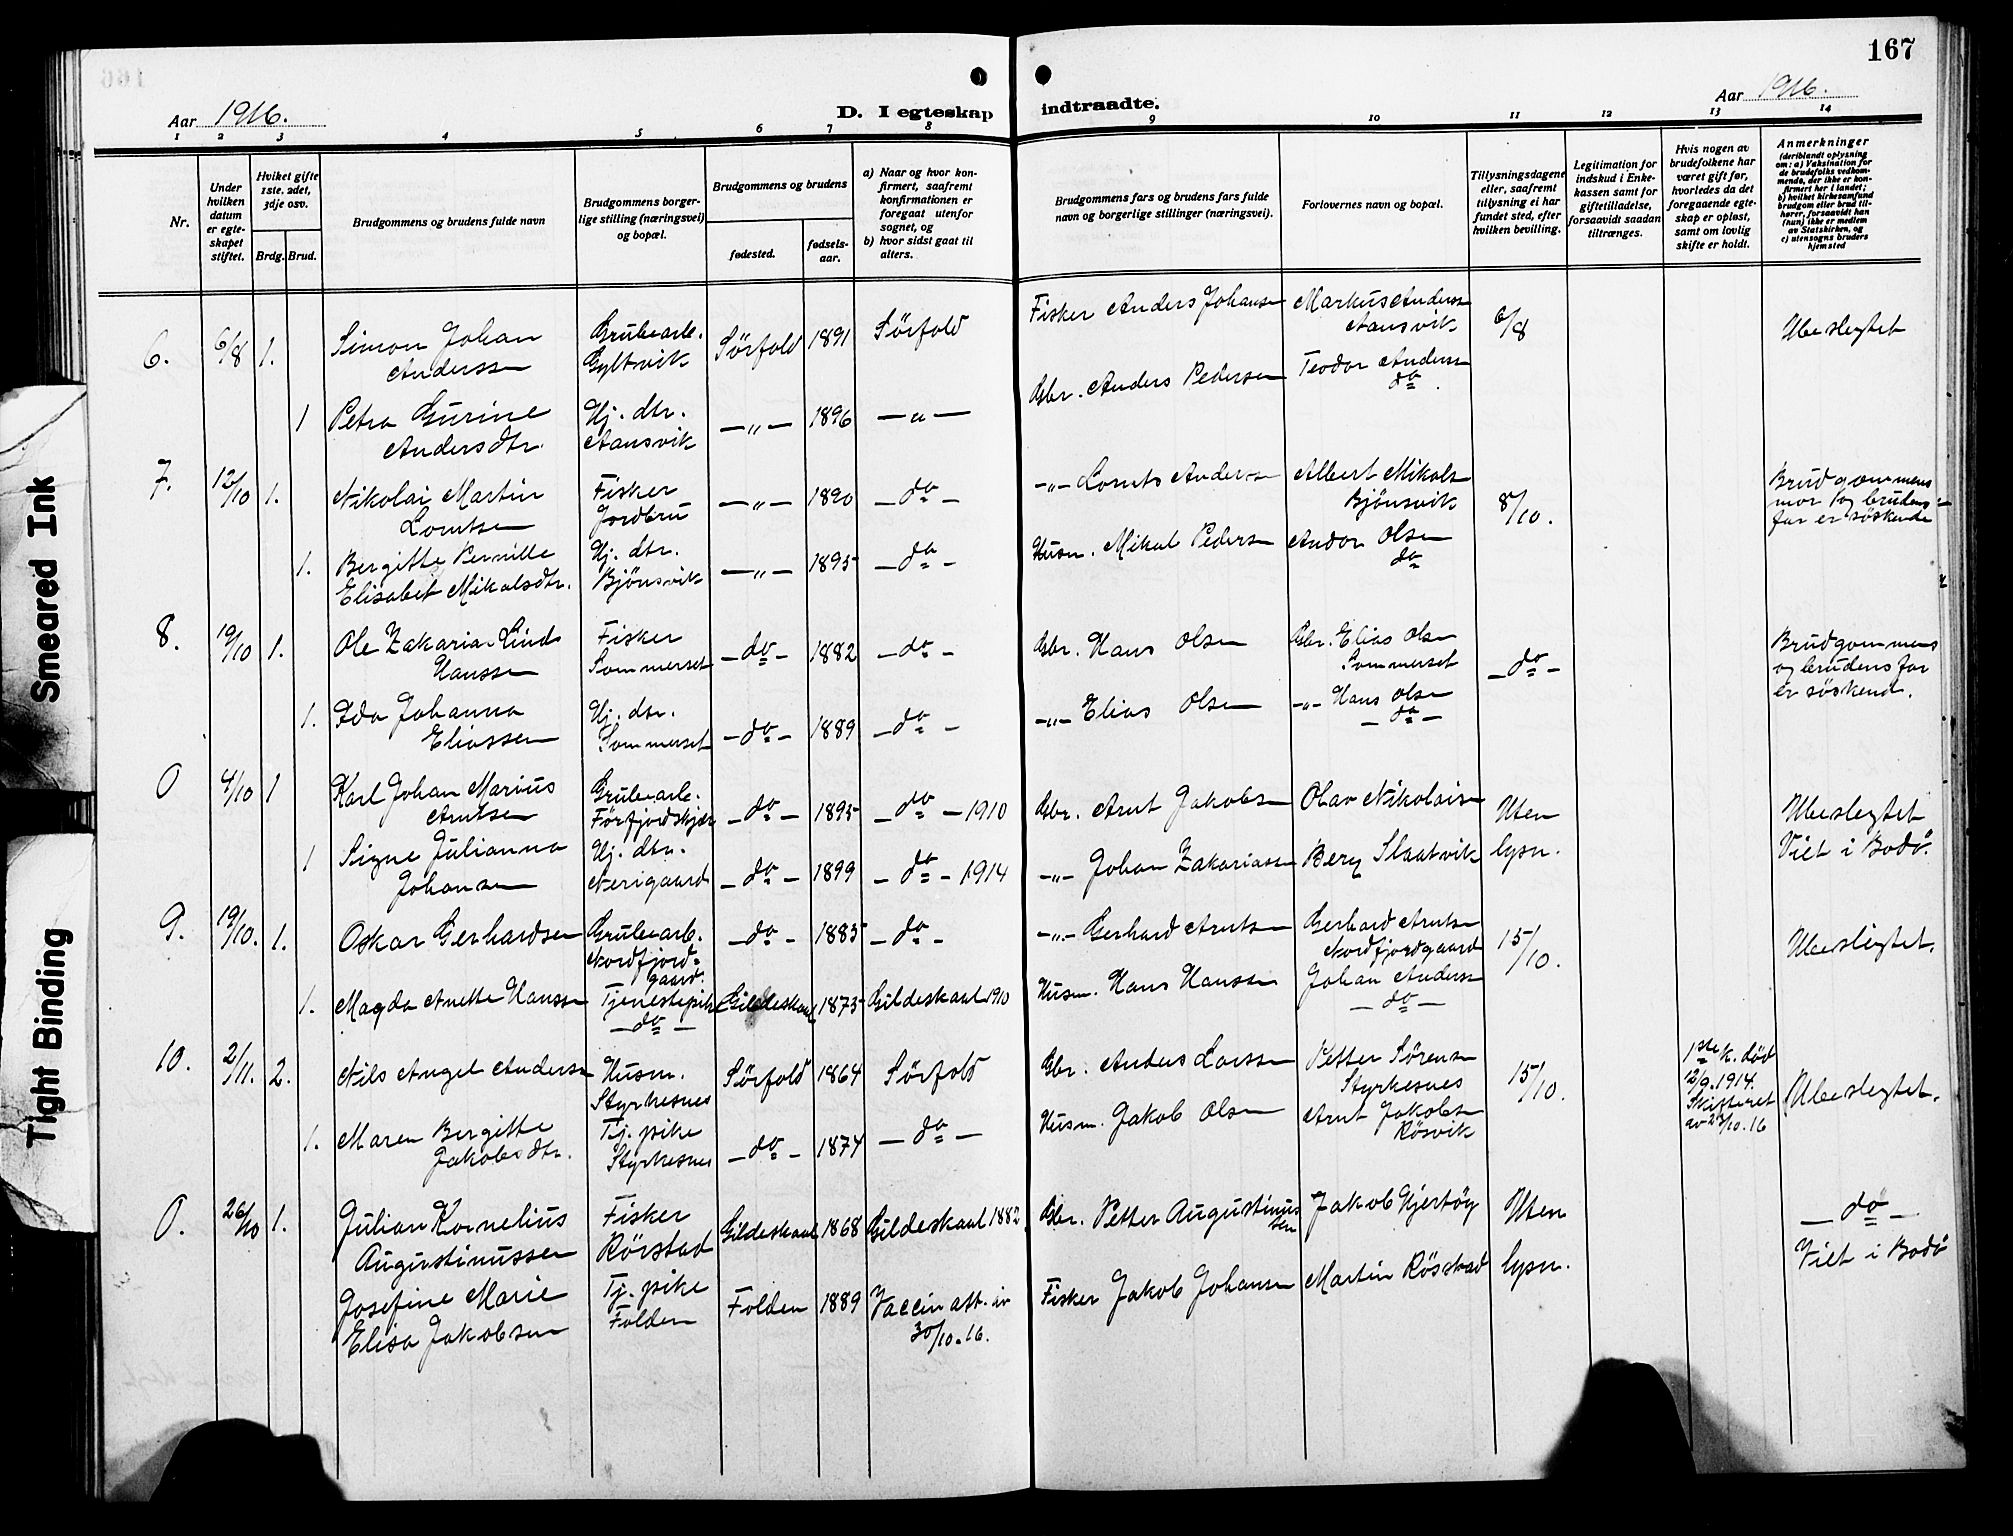 167
Aar 1916.
D. I egteskap indtraadte.
Aar 1916.
1 2 3 4 5 6 7 8 9 10 11 12 13 14
Nr.
Under hvilken datum er egteskapet stiftet.
Hvilket gifte 1ste, 2det, 3dje osv.
Brdg. Brud.
Brudgommens og brudens fulde navn
Brudgommens borgerlige stilling (næringsvei) og bopæl.
Brudgommens og brudens
fødested.
fødselsaar.
a) Naar og hvor konfirmert, saafremt konfirmationen er foregaat utenfor sognet, og
b) hvor sidst gaat til alters.
Brudgommens fars og brudens fars fulde navn og borgerlige stillinger (næringsvei).
Forlovernes navn og bopæl.
Tillysningsdagene eller, saafremt tillysning ei har fundet sted, efter hvilken bevilling.
Legitimation for indskud i Enkekassen samt for giftetilladelse, forsaavidt saadan tiltrænges.
Hvis nogen av brudefolkene har været gift før, hvorledes da det foregaaende egteskap er opløst, samt om lovlig skifte er holdt.
Anmerkninger (deriblandt oplysning om: a) Vaksination for de brudefolks vedkommende, der ikke er konfirmert her i landet; b) hvilket kirkesamfund brudgom eller brud tilhører, forsaavidt han (hun) ikke er medlem av Statskirken, og c) utensogns bruders hjemsted
6. 6/8 1. Simon Johan Anderssen Grubearb. Gyltvik Sörfold 1891 Sörfold Fisker Anders Johansen Markus Anderss Aansvik 6/8 Ubeslegtet
1 Petra Gurine Andersdtr. Hj. dtr. Aansvik —"— 1896 —"— Gbr. Anders Pedersen Teodor Anderss do
7. 12/10 1. Nikolai Martin Lorntsen Fisker Jordbru —"— 1890 —do— —"— Lornts Anders Albert Mikals Bjönsvik 8/10. Brudgommens mor og brudens far er söskende
1. Bergitte Pernille Elisabet Mikalsdtr. Hj. dtr. Bjönsvik —"— 1895 —do— Husm. Mikal Peders Andor Olsen do
8. 19/10 1. Ole Zakarias Lind Hanssen Fisker Sommerset —do— 1882 —do— Gbr. Hans Olsen Gbr. Elias Olsen Sommerset —do— Brudgommens og brudens far er söskend.
1. Ida Johanna Eliassen Hj. dtr. Sommerset —do— 1889 —do— —"— Elias Olsen —"— Hans Olsen —do—
0 4/10 1 Karl Johan Marius Arntsen Grubearb. —do— 1895 —do— 1910 Gbr. Arnt Jakobsen Olav Nikolais Uten Ubeslegtet
1 Signe Julianna Johansen Hj. dtr. Nerigaard —do— 1899 —do— 1914 —"— Johan Zakariassen Berg Slaatvik lysn. Viet i Bodö.
9. 19/10. 1. Oskar Gerhardsen Grubearb. Nordfjordgaard. —do— 1885 —do— —"— Gerhard Arntsen Gerhard Arntsen Nordfjordgaard 15/10. Ubeslegtet.
1. Magda Anette Hanssen Tjenestepike —do— Gildeskaal 1875 Gildeskaal 1910 Husm. Hans Hanssen Johan Anderss —do—
10. 2/11. 2. Nils Angel Anders Husm. Styrkesnes Sörfold 1864 Sörfold Gbr. Anders Larssen Petter Sörens Styrkesnes 15/10. 1ste k. död 12/9.1914. Skifteret av 23/10.16 Ubeslegtet.
1. Maren Bergitte Jakobsdtr. Tj. pike Styrkesnes —do— 1874 —do— Husm. Jakob Olsen Arnt Jakobs Rösvik
0. 26/10 1. Julian Kornelius Augustinussen Fisker Rörstad Gildeskaal 1868 Gildeskaal 1882. Gbr. Petter Augustinussen Jakob Hjertöy Uten —do—
Josefine Marie Elisa Jakobsen Tj. pike Folden Folden 1889 Vaccin att. av 30/10.16. Fisker Jakob Johansen Martin Rösstad lysn. Viet i Bodö
Smeared Ink
Tight Binding